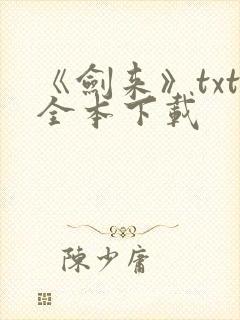 《劍来》txt
全本下載
陳少庸